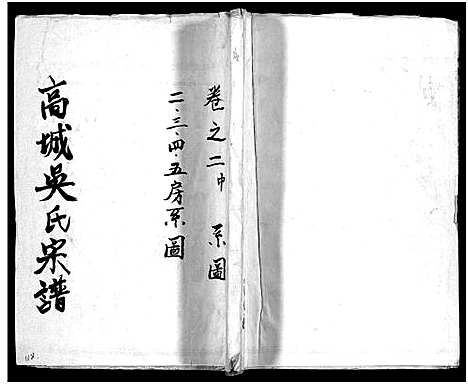 卷之二中 系圖
二·三·四·五房系圖
高城吳氏宗譜